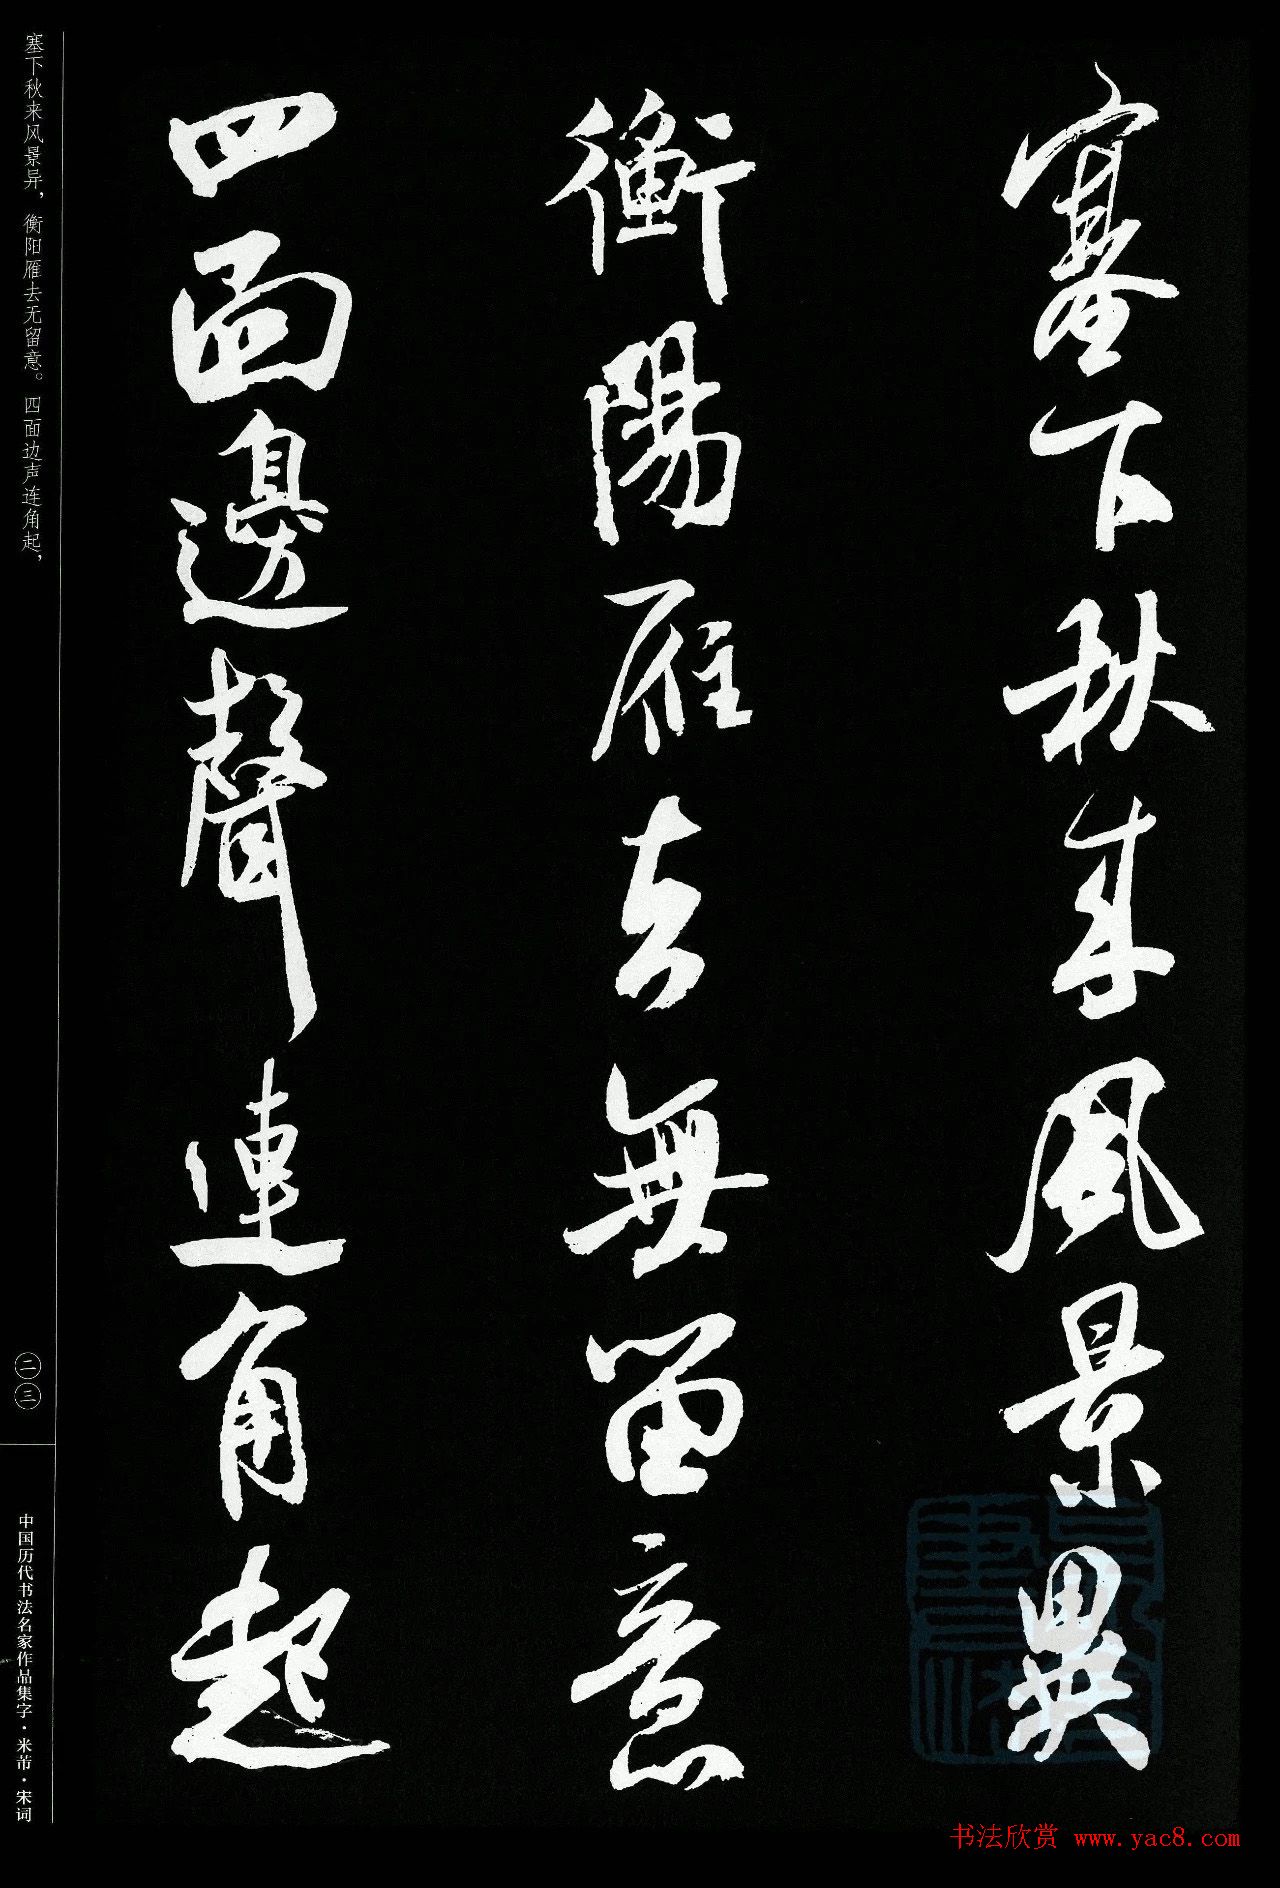 塞下秋来風景異
衡陽雁去無留意
四面邊聲連角起
塞下秋来风景异，衡阳雁去无留意。四面边声连角起，
二三
中国历代书法名家作品集字·米芾·宋词
书法欣赏 www.yac8.com